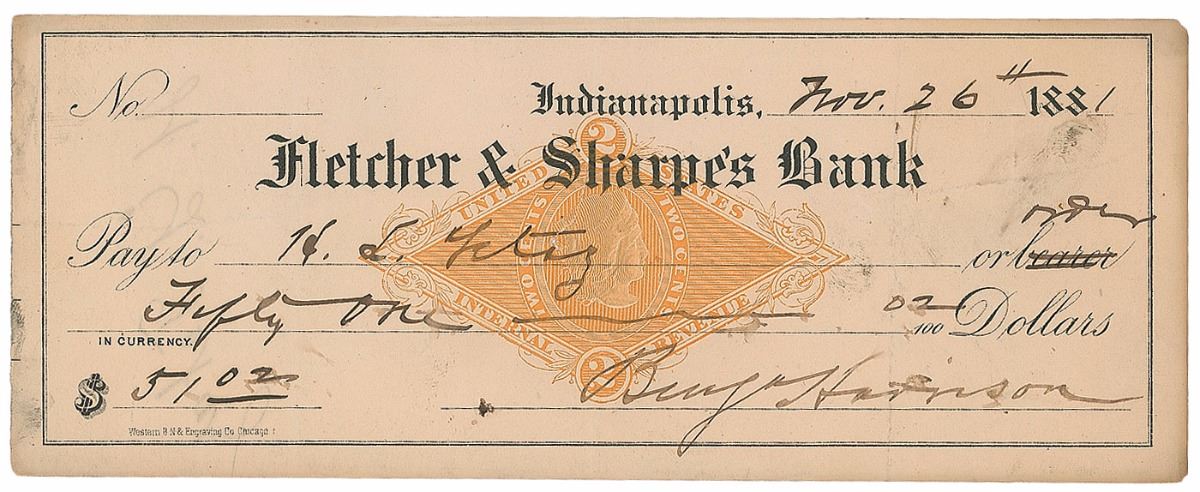 No.
Indianapolis, Nov. 26th 1881
Fletcher & Sharpe's Bank
2
UNITED STATES
TWO CENTS TWO CENTS
INTERNAL REVENUE
2
order
Pay to H. L. or bearer
Fifty One 02/100 Dollars
IN CURRENCY.
$ 51.02
Benj Harrison
Western B N & Engraving Co Chicago